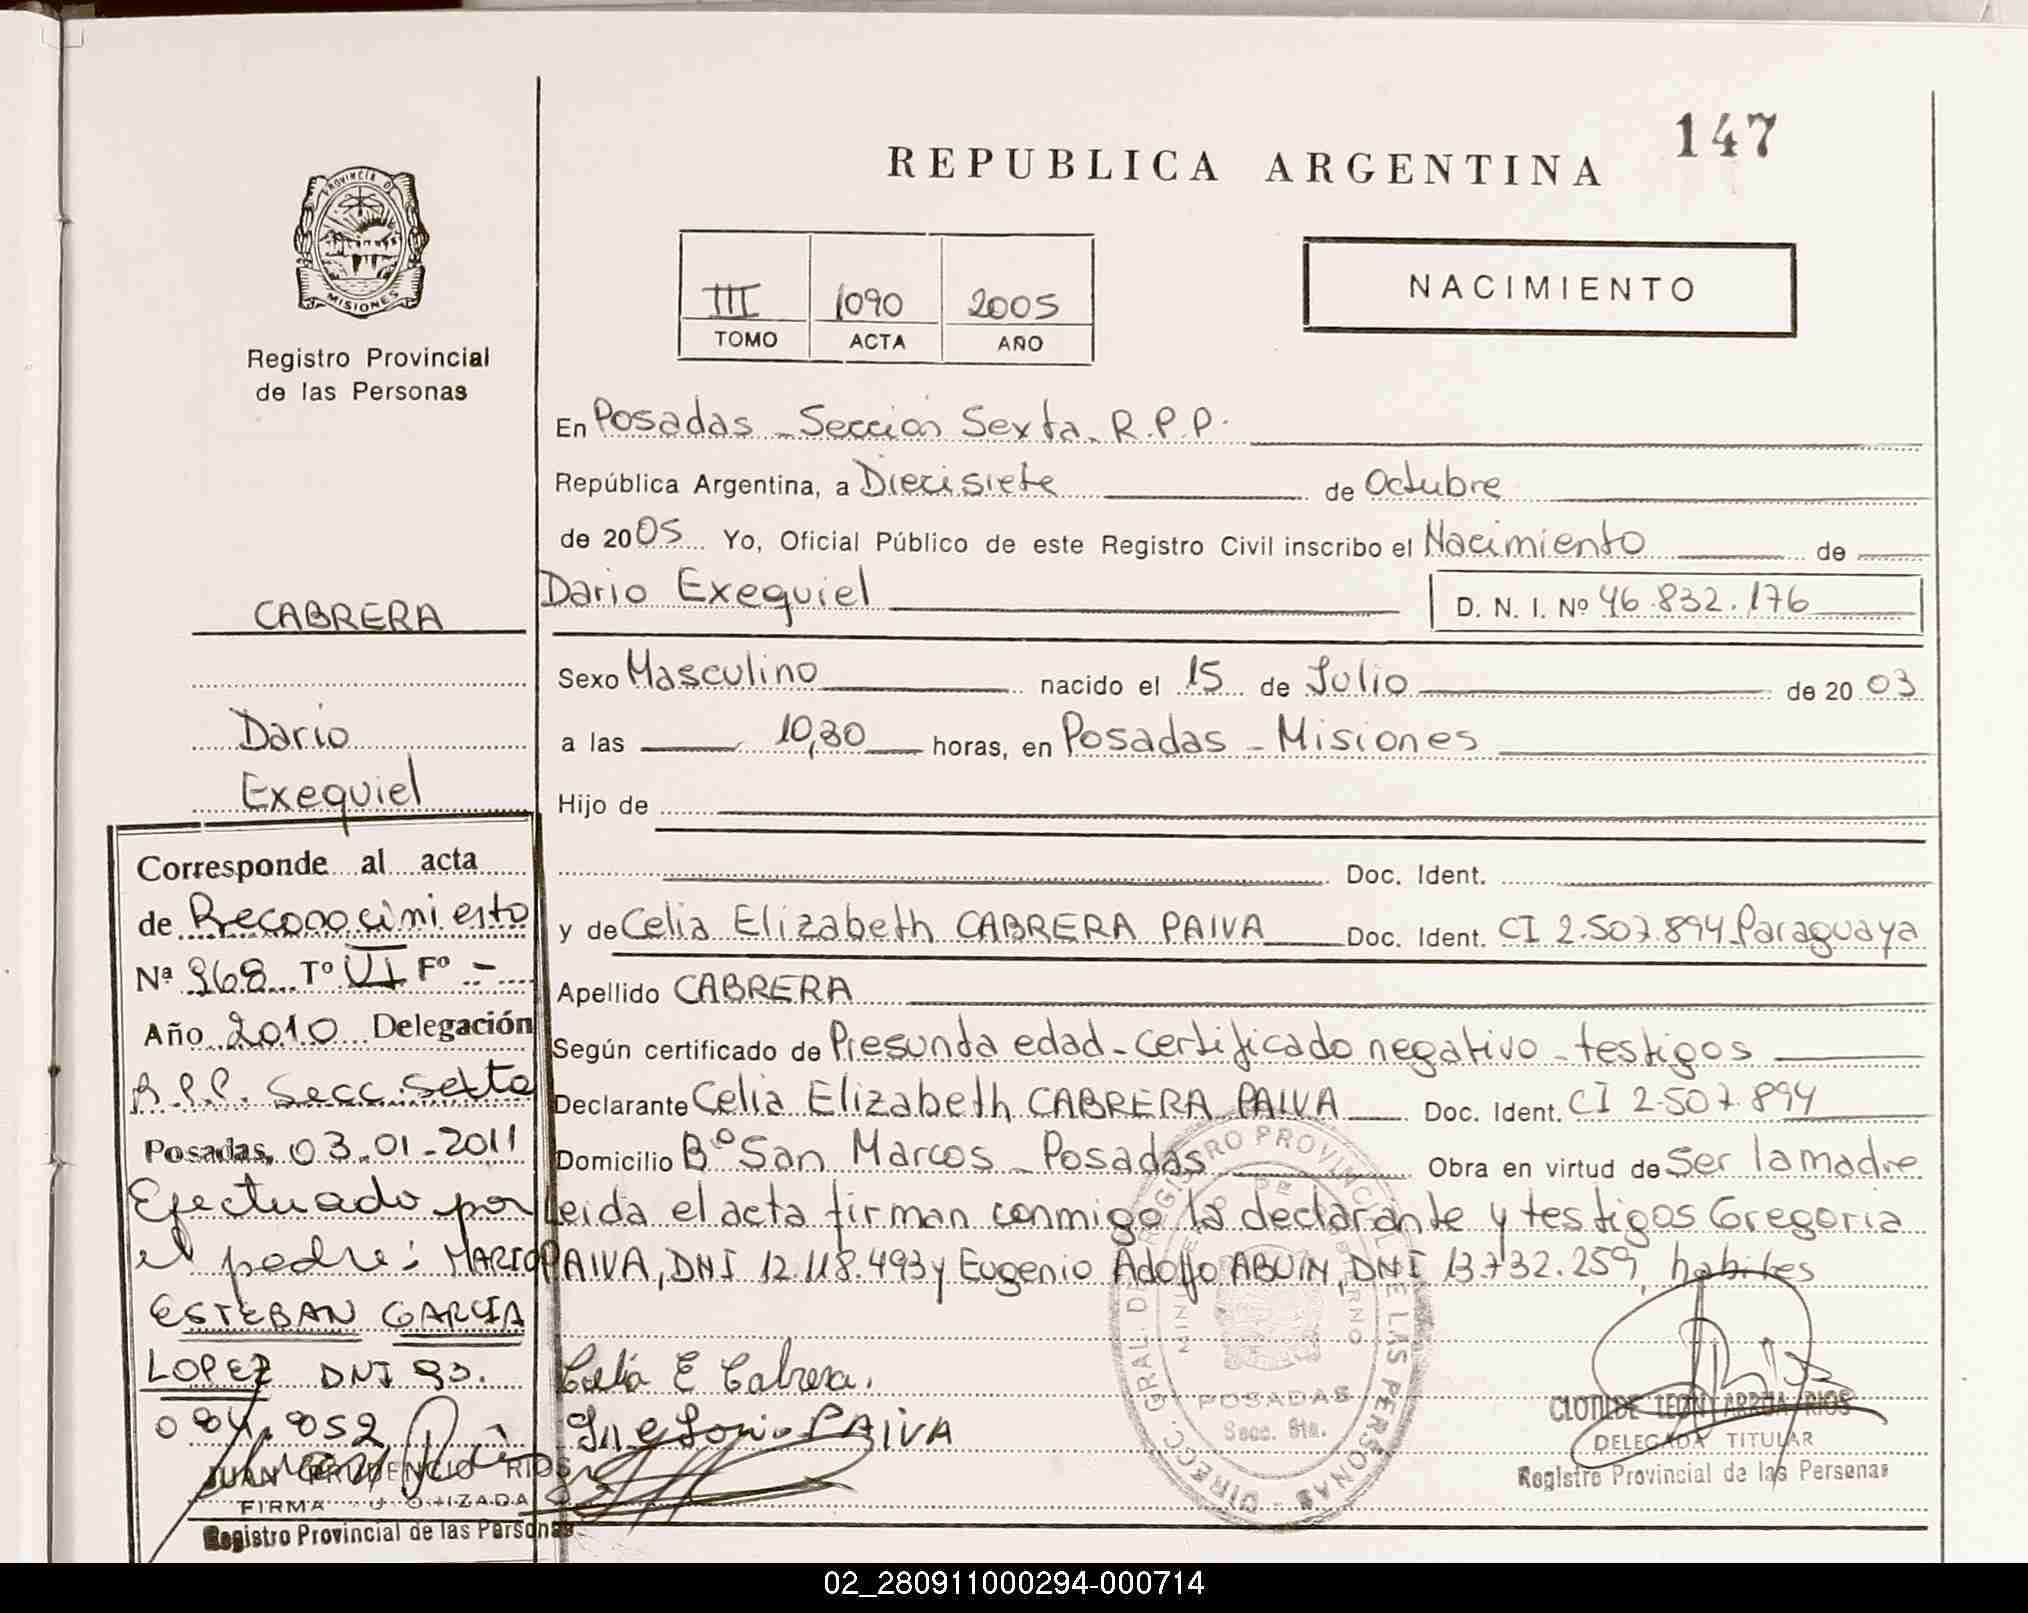 147
REPUBLICA ARGENTINA
PROVINCIA DE
MISIONES
Registro Provincial
de las Personas
III 1090 2005
TOMO ACTA AÑO
NACIMIENTO
En Posadas - Sección Sexta - R.P.P.
República Argentina, a Diecisiete de Octubre
de 2005 Yo, Oficial Público de este Registro Civil inscribo el Nacimiento de
Dario Exequiel D. N. I. Nº 46.832.176
Sexo Masculino nacido el 15 de Julio de 2003
a las 10,30 horas, en Posadas - Misiones
Hijo de
Doc. Ident.
y de Celia Elizabeth CABRERA PAIVA Doc. Ident. CI 2.507.894 Paraguaya
Apellido CABRERA
Según certificado de Presunda edad - certificado negativo - testigos
Declarante Celia Elizabeth CABRERA PAIVA Doc. Ident. CI 2.507.894
Domicilio Bº San Marcos - Posadas Obra en virtud de Ser la madre
Leida el acta firman conmigo la declarante y testigos Gregoria
PAIVA, DNI 12.118.493 y Eugenio Adolfo ABUIN, DNI 13.732.259, habiles
Celia E Cabrera.
PAIVA
CABRERA
Dario
Exequiel
Corresponde al acta
de Reconocimiento
Nª 968 Tº VI Fº -
Año 2010 Delegación
R.P.P. Secc. Sexta
Posadas, 03-01-2011
Efectuado por
el padre: MARIO
ESTEBAN GARCIA
LOPEZ DNI 93.
084.852
JUAN PRUDENCIO RIOS
FIRMA AUTORIZADA
Registro Provincial de las Personas
DIRECC. GRAL. DE REGISTRO PROVINCIAL DE LAS PERSONAS
MINISTERIO DE GOBIERNO
POSADAS
Secc. 6ta.
CLOTILDE LEONI ARRUA RIOS
DELEGADA TITULAR
Registro Provincial de las Personas
02_280911000294-000714